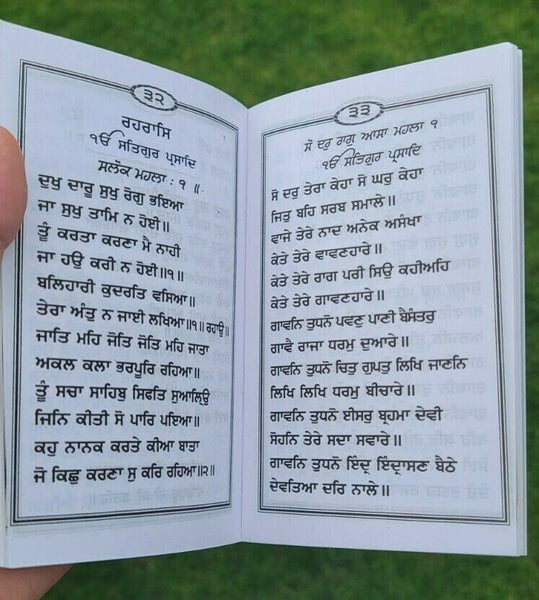 ੩੨
ਰਹਰਾਸਿ
ੴ ਸਤਿਗੁਰ ਪ੍ਰਸਾਦਿ
ਸਲੋਕ ਮਹਲਾ : ੧ ॥
ਦੁਖੁ ਦਾਰੂ ਸੁਖੁ ਰੋਗੁ ਭਇਆ
ਜਾ ਸੁਖੁ ਤਾਮਿ ਨ ਹੋਈ॥
ਤੂੰ ਕਰਤਾ ਕਰਣਾ ਮੈ ਨਾਹੀ
ਜਾ ਹਉ ਕਰੀ ਨ ਹੋਈ॥੧॥
ਬਲਿਹਾਰੀ ਕੁਦਰਤਿ ਵਸਿਆ॥
ਤੇਰਾ ਅੰਤੁ ਨ ਜਾਈ ਲਖਿਆ॥੧॥ ਰਹਾਉ॥
ਜਾਤਿ ਮਹਿ ਜੋਤਿ ਜੋਤਿ ਮਹਿ ਜਾਤਾ
ਅਕਲ ਕਲਾ ਭਰਪੂਰਿ ਰਹਿਆ॥
ਤੂੰ ਸਚਾ ਸਾਹਿਬੁ ਸਿਫਤਿ ਸੁਆਲਿਉ
ਜਿਨਿ ਕੀਤੀ ਸੋ ਪਾਰਿ ਪਇਆ॥
ਕਹੁ ਨਾਨਕ ਕਰਤੇ ਕੀਆ ਬਾਤਾ
ਜੋ ਕਿਛੁ ਕਰਣਾ ਸੁ ਕਰਿ ਰਹਿਆ॥੨॥
੩੩
ਸੋ ਦਰੁ ਰਾਗੁ ਆਸਾ ਮਹਲਾ ੧
ੴ ਸਤਿਗੁਰ ਪ੍ਰਸਾਦਿ
ਸੋ ਦਰੁ ਤੇਰਾ ਕੇਹਾ ਸੋ ਘਰੁ ਕੇਹਾ
ਜਿਤੁ ਬਹਿ ਸਰਬ ਸਮਾਲੇ॥
ਵਾਜੇ ਤੇਰੇ ਨਾਦ ਅਨੇਕ ਅਸੰਖਾ
ਕੇਤੇ ਤੇਰੇ ਵਾਵਣਹਾਰੇ॥
ਕੇਤੇ ਤੇਰੇ ਰਾਗ ਪਰੀ ਸਿਉ ਕਹੀਅਹਿ
ਕੇਤੇ ਤੇਰੇ ਗਾਵਣਹਾਰੇ॥
ਗਾਵਨਿ ਤੁਧਨੋ ਪਵਣੁ ਪਾਣੀ ਬੈਸੰਤਰੁ
ਗਾਵੈ ਰਾਜਾ ਧਰਮੁ ਦੁਆਰੇ॥
ਗਾਵਨਿ ਤੁਧਨੋ ਚਿਤੁ ਗੁਪਤੁ ਲਿਖਿ ਜਾਣਨਿ
ਲਿਖਿ ਲਿਖਿ ਧਰਮੁ ਬੀਚਾਰੇ॥
ਗਾਵਨਿ ਤੁਧਨੋ ਈਸਰੁ ਬ੍ਰਹਮਾ ਦੇਵੀ
ਸੋਹਨਿ ਤੇਰੇ ਸਦਾ ਸਵਾਰੇ॥
ਗਾਵਨਿ ਤੁਧਨੋ ਇੰਦ੍ਰ ਇੰਦ੍ਰਾਸਣਿ ਬੈਠੇ
ਦੇਵਤਿਆ ਦਰਿ ਨਾਲੇ॥